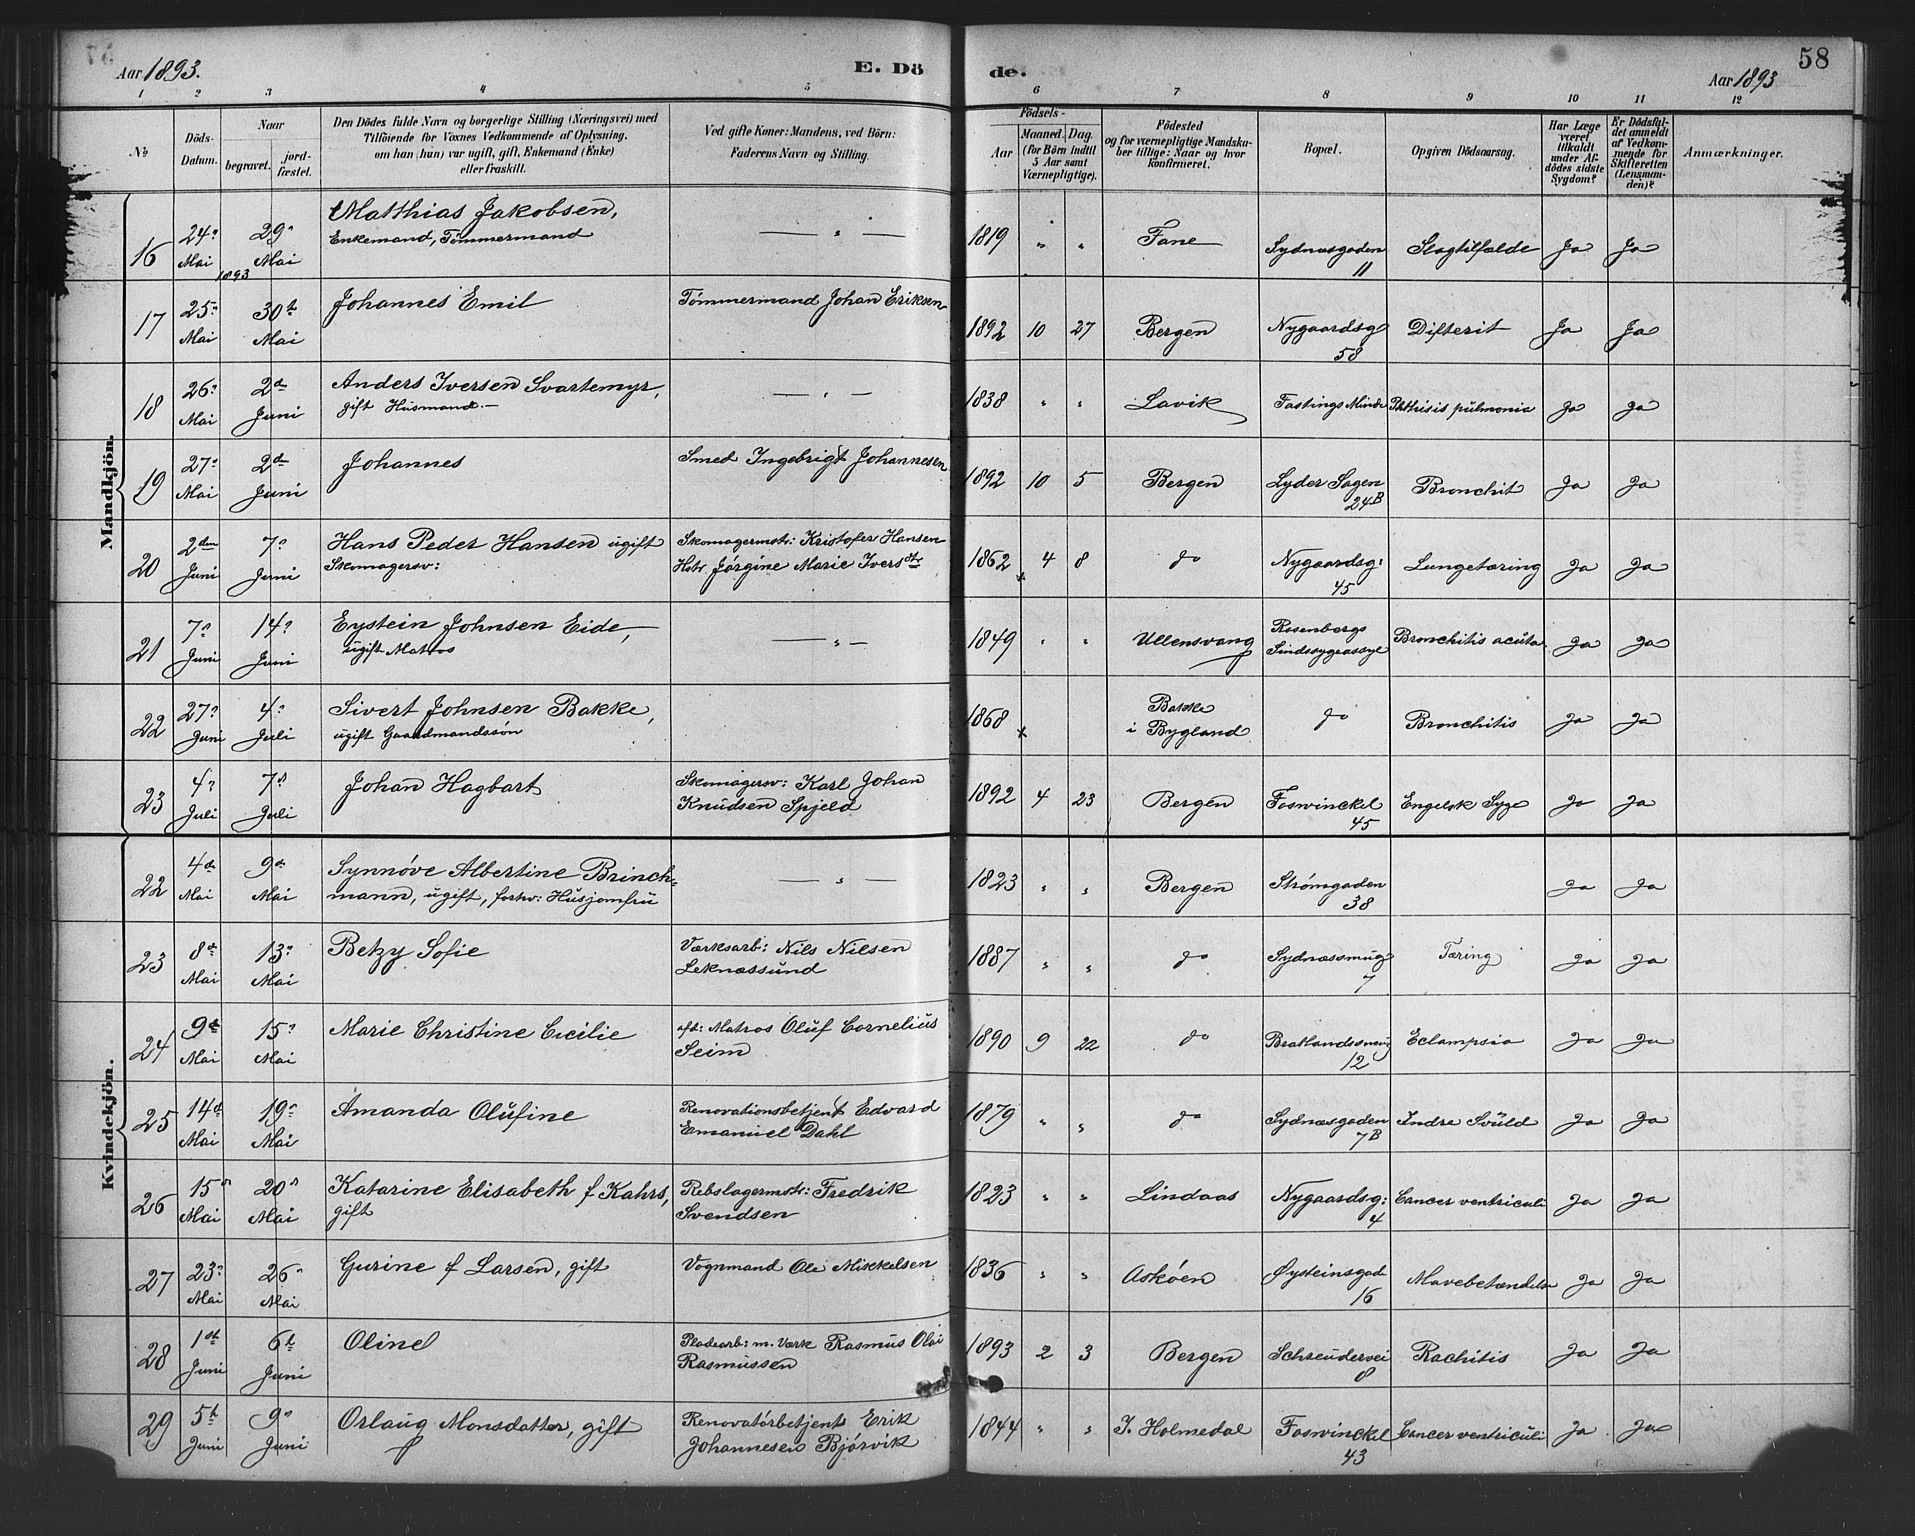 Aar 1893. E. Dö de. Aar 1893 58
1 2 3 4 5 6 7 8 9 10 11 12
№
Döds-Datum.
Naar
begravet. jord-fæstet.
Den Dödes fulde Navn og borgerlige Stilling (Næringsvei) med
Tilföiende for Voxnes Vedkommende af Oplysning,
om han (hun) var ugift, gift, Enkemand (Enke)
eller fraskilt.
Ved gifte Koner: Mandens, ved Börn:
Faderens Navn og Stilling.
Födsels-
Aar Maaned. Dag.
(for Börn indtil
5 Aar samt
Værnepligtige).
Födested
og for værnepligtige Mandska-
ber tillige: Naar og hvor
konfirmeret.
Bopæl.
Opgiven Dödsaarsag.
Har Læge
været
tilkaldt
under Af-
dödes sidste
Sygdom?
Er Dödsfal-
det anmeldt
af Vedkom-
mende for
Skifteretten
(Lensman-
den)?
Anmærkninger.
Mandkjön.
16 24de Mai 1893 29de Mai Matthias Jakobsen,
Enkemand, Tømmermand — „ — 1819 „ „ Fane Sydnæsgaden 11 Slagtilfælde Ja Ja
17 25de Mai 30te Mai Johannes Emil Tömmermand Johan Eriksen 1892 10 27 Bergen Nygaardsg 58 Difterit Ja Ja
18 26de Mai 2den Juni Anders Iversen Svartemyr,
gift Husmand.— — „ — 1838 „ „ Lavik Fastings Minde Phthisis pulmonia Ja Ja
19 27de Mai 2den Juni Johannes Smed Ingebrigt Johannesen 1892 10 5 Bergen Lyder Sagen 24B Bronchit Ja Ja
20 2den Juni 7de Juni Hans Peder Hansen ugift
Skomagersv: Skomagermstr: Kristofer Hansen
Hstr Jørgine Marie Iversdtr 1862 4 8 do Nygaardsg: 45 Lungetæring Ja Ja
21 7de Juni 14de Juni Eystein Johnsen Eide,
ugift Matros — „ — 1849 „ „ Ullensvang Rosenbergs
Sindssygeasyl Bronchitis acuta. Ja Ja
22 27de Juni 4de Juli Sivert Johnsen Bakke,
ugift Gaardmandssön 1868 x Bakke
i Bygland do Bronchitis Ja Ja
23 4de Juli 7de Juli Johan Hagbart Skomagersv: Karl Johan
Knudsen Spjeld 1892 4 23 Bergen Foswinckel 45 Engelsk Syge Ja Ja
Kvindekjön.
22 4de Mai 9de Mai Synnøve Albertine Brinch-
mann, ugift, forhv: Husjomfru — „ — 1823 „ „ Bergen Strømgaden 38 Ja Ja
23 8de Mai 13de Mai Betzy Sofie Værksarb: Nils Nilsen
Leknæssund 1887 „ „ do Sydnæssmug 7 Tæring Ja Ja
24 9de Mai 15de Mai Marie Christine Cicilie afd: Matros Oluf Cornelius
Seim 1890 9 22 do 12 Eclampsia Ja Ja
25 14de Mai 19de Mai Amanda Olufine Renovationsbetjent Edvard
Emanuel Dahl 1879 „ „ do Sydnæsgaden 7B Indre Svuld Ja Ja
26 15de Mai 20de Mai Katarine Elisabeth f Kahrs,
gift Rebslagermstr: Fredrik
Svendsen 1823 „ „ Lindaas Nygaardsg: 4 Cancer ventriculi Ja Ja
27 23de Mai 26de Mai Gurine f Larsen, gift Vognmand Ole Mikkelsen 1836 „ „ Askøen Øysteinsgad 16 Mavebetændelse Ja Ja
28 1ste Juni 6te Juni Oline Pladearb: m. Værk Rasmus Olai
Rasmussen 1893 2 3 Bergen Schreudervei 8 Rachitis Ja Ja
29 5te Juni 9de Juni Orlaug Monsdatter, gift Renovatørbetjent Erik
Johannesen Bjørvik 1844 „ „ I. Holmedal Foswinckel 43 Cancer ventriculi Ja Ja